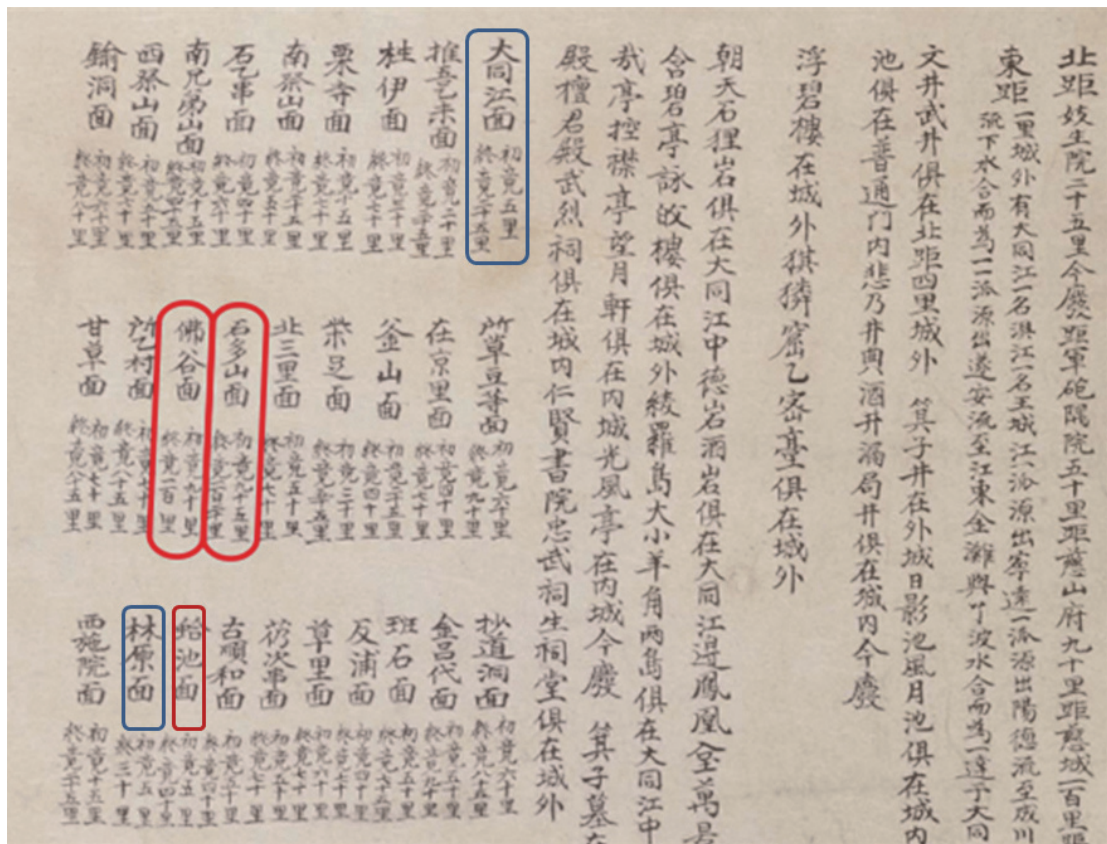 北距妓生院二十五里今廢距軍砲隅院五十里距慈山府九十里距慈城一百里距
東距一里城外有大同江一名浿江一名王城江一汾源出寧遠一派源出陽德流至成川
流下水合而為一一派源出遂安流至江東金灘與丫波水合而為一達于大同
文井武井俱在北距四里城外 箕子井在外城日影池風月池俱在城內
池俱在普通門內悲乃井興酒井漏局井俱在城內今廢
浮碧樓在城外猉獜窟乙密臺俱在城外
朝天石狸岩俱在大同江中德岩酒岩俱在大同江邊鳳凰坌萬景
含碧亭詠皈樓俱在城外綾羅島大小羊角兩島俱在大同江中
㦲亭控襟亭望月軒俱在內城光風亭在內城今廢 箕子墓在
殿檀君殿武烈祠俱在城內仁賢書院忠武祠生祠堂俱在城外
大同江面 初竟五里 終竟二十五里
推吾乙未面 初竟二十里 終竟三十五里
桂伊面 初竟三十里 終竟七十里
栗寺面 初竟十五里 終竟六十里
南祭山面 初竟二十五里 終竟五十里
石乙串面 初竟四十里 終竟六十里
南兄弟山面 初竟十五里 終竟四十五里
西祭山面 初竟六十里 終竟八十里
鍮洞面 初竟六十里 終竟八十里
所草豆等面 初竟六十里 終竟九十里
在京里面 初竟四十里 終竟七十里
釜山面 初竟二十五里 終竟四十里
柴足面 初竟三十里 終竟五十五里
北三里面 初竟五十里 終竟七十里
石多山面 初竟八十五里 終竟一百二十里
佛谷面 初竟九十里 終竟一百里
所乙村面 初竟七十里 終竟八十五里
甘草面 初竟七十里 終竟八十五里
抄道洞面 初竟六十里 終竟八十五里
金呂代面 初竟五十里 終竟九十里
班石面
反浦面
草里面
古順和面
蛤池面 初竟五里 終竟四十里
林原面 初竟五里 終三十里
西施院面 初竟十五里 終竟三十五里